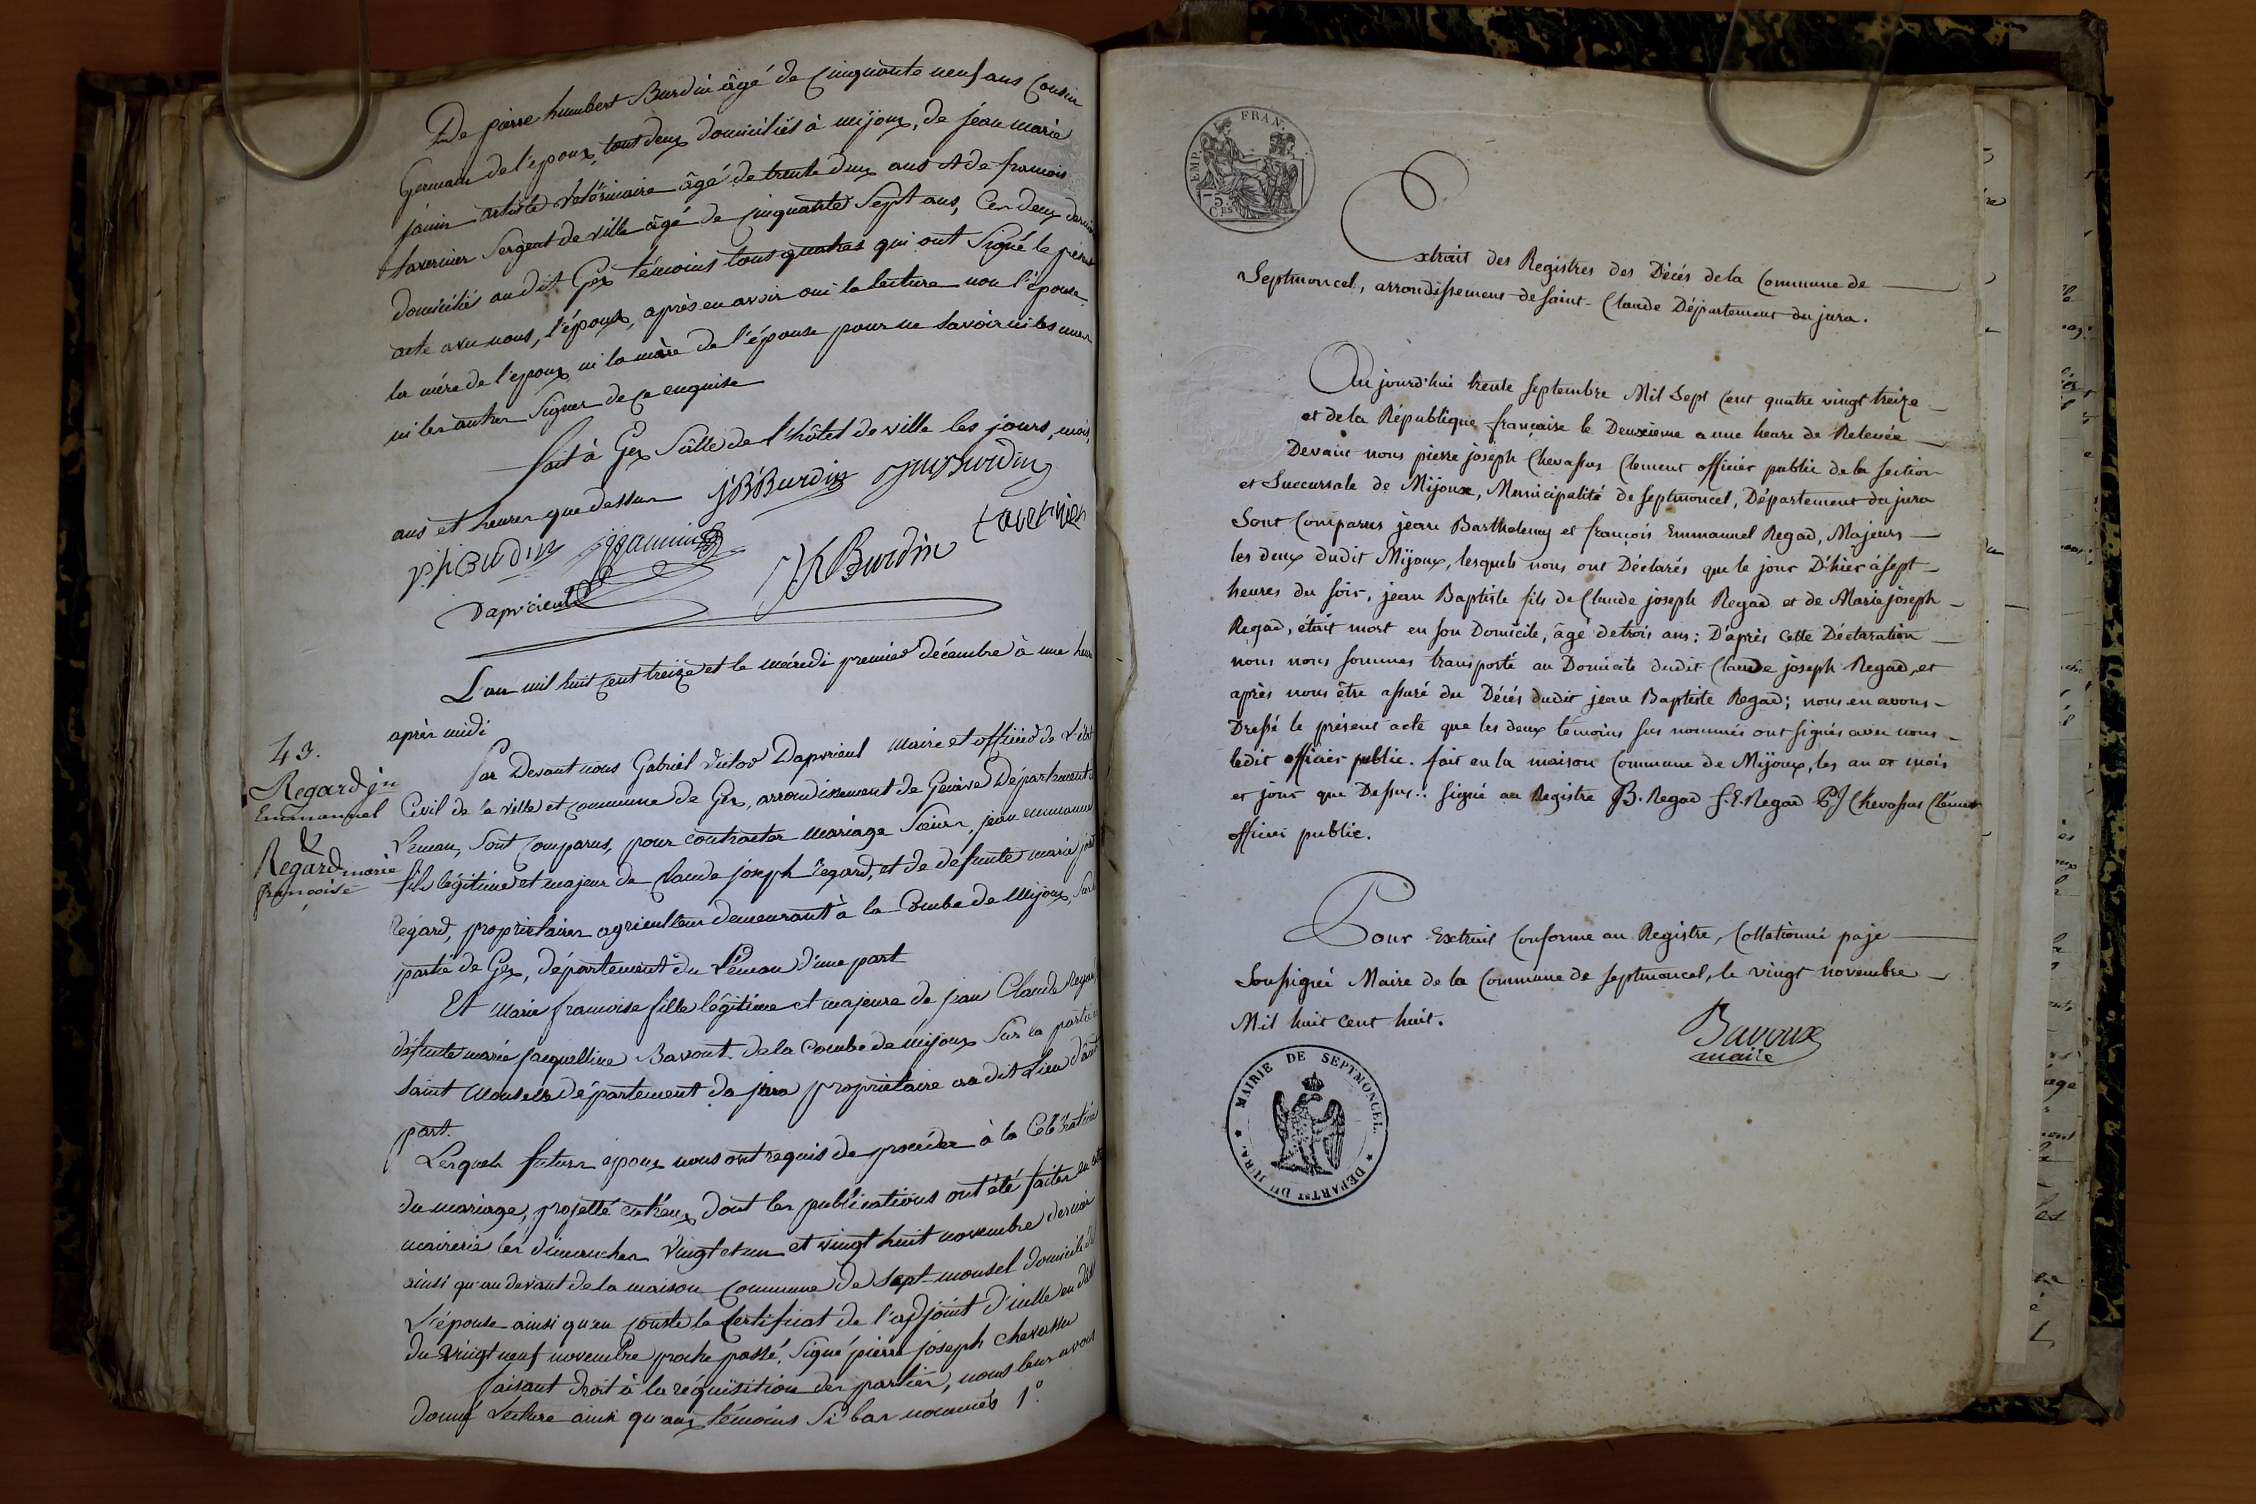 De pierre humbert Burdin âgé de Cinquante neuf ans Cousin
Germain de l'epoux, tout deux domiciliés à mijoux, de jean marie
janin artiste vetérinaire âgé de trente deux ans et de francois
tavernier Sergent de ville âgé de Cinquante Sept ans, Ces deux
domiciliés audit Gex témoins tous quatres qui ont Signé le
acte avec nous, l'époux, après en avoir oui la lecture non l'épouse
la mére de l'epoux ni la mère de l'épouse pour ne Savoir ni les unes
ni les autres Signer de ce enquise
fait à Gex Sâlle de l'hôtel de ville les jours, mois,
ans et heures que dessus JBBurdin JMBurdin
ph Burdin JMJannin JKBurdin tavernier
Dapvrieul
L'an mil huit cent treize et le mécredi premier décembre à une heure
après midi
43.
Regard jn
Emmanuel
&
Regard marie
françoise
Par Devant nous Gabriel Victor Dapvrieul Maire et officier de L'état
Civil de la ville et commune de Gex, arrondissement de Genève Département
Leman, Sont Comparus, pour contracter mariage Sieurs, jean emmanuel
fils légitime et majeur de Claude joseph regard, et de defunte marie
regard, proprietaires agriculteur demeurant à la Combe de Mijoux, Sur la
partie de Gex, département du Léman d'une part
Et Marie francoise fille légitime et majeure de jean Claude regard
défunte marie jacquelline Bavout de la Combe de mijoux Sur la partie
Saint Monselle département du jura proprietaire audit Lieu d'autre
part.
Lesquels futurs epoux nous ont requis de proceder à la Celébration
du mariage, projetté entreux dont les publications ont été faites en
mairerie les dimanches Vingt et un et vingt huit novembre dernier
ainsi qu'au devant de la maison Commune de Sept monsel domicile de
L'épouse ainsi qu'en Conste le Certificat de l'adjoint d'icelle en date
du vingt neuf novembre proche passé, Signé pierre joseph chevassu
faisant droit à la réquisition des parties, nous leur avons
donné Lecture ainsi qu'aux témoins Si bas nommés 1°.
EMP. FRAN.
75
CES
Extrait des Registres des Décés de la Commune de
Septmoncel, arrondissement de saint-Claude Département du jura.
Au jourd'hui trente septembre Mil Sept Cent quatre vingt treize
et de la République française le Deuxieme a une heure de Relevée
Devant nous pierre joseph Chevassus Clement officier public de la section
et Succursale de Mijoux, Municipalité de septmoncel, Département du jura
Sont Comparus jean Barthelemy et françois Emmanuel Regad, Majeurs
les deux dudit Mijoux, lesquels nous ont Déclarés que le jour D'hier à sept
heures du soir, jean Baptiste fils de Claude joseph Regad et de Marie joseph
Regad, était mort en son Domicile, âgé de trois ans: D'après Cette Déclaration
nous nous sommes transporté au Domicile dudit Claude joseph Regad, et
après nous être assuré du Décés dudit jean Baptiste Regad; nous en avons
Dressé le présent acte que les deux témoins sus nommés ont signés avec nous
ledit officier public. fait en la maison Commune de Mijoux, les an et mois
et jour que Dessus.: Signé au Registre JB. Regad f.E. Regad PJ Chevassus Clément
officier public.
Pour Extrait Conforme au Registre, Collationné par le
Soussigné Maire de la Commune de septmoncel, le vingt novembre
Mil huit Cent huit.
Bavoux
maire
MAIRIE DE SEPTMONCEL.
★ DÉPART.NT DU JURA. ★